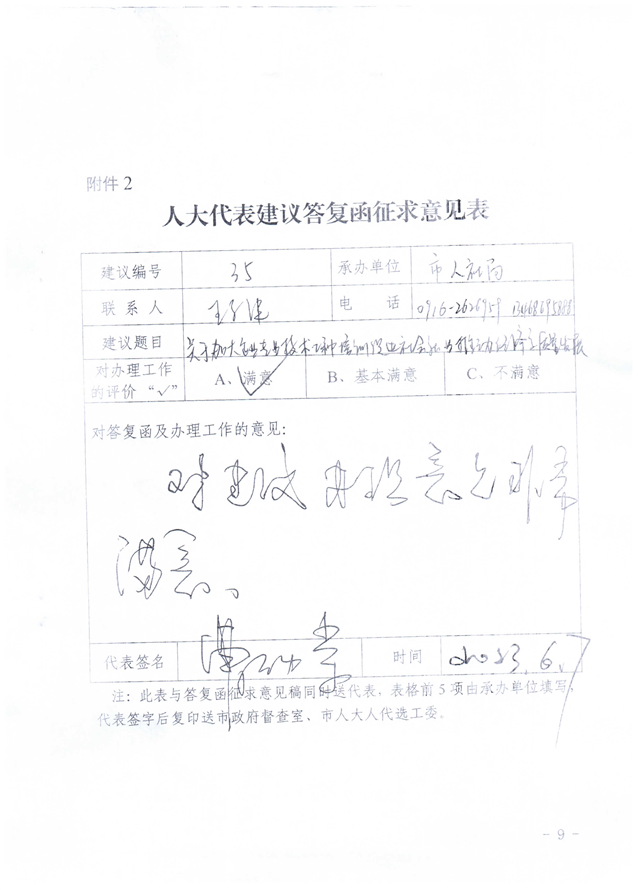 附件 2
人大代表建议答复函征求意见表
建议编号 35 承办单位 市人社局
联系人 王子健 电话 0916-2626959
建议题目 关于加大 技术 培训 社会
对办理工作的评价“√” A、满意 √ B、基本满意 C、不满意
对答复函及办理工作的意见：
对建议办理意见非常
满意、
代表签名 时间 2023.6.7
注：此表与答复函征求意见稿同时送代表，表格前 5 项由承办单位填写，
代表签字后复印送市政府督查室、市人大人代选工委。
- 9 -